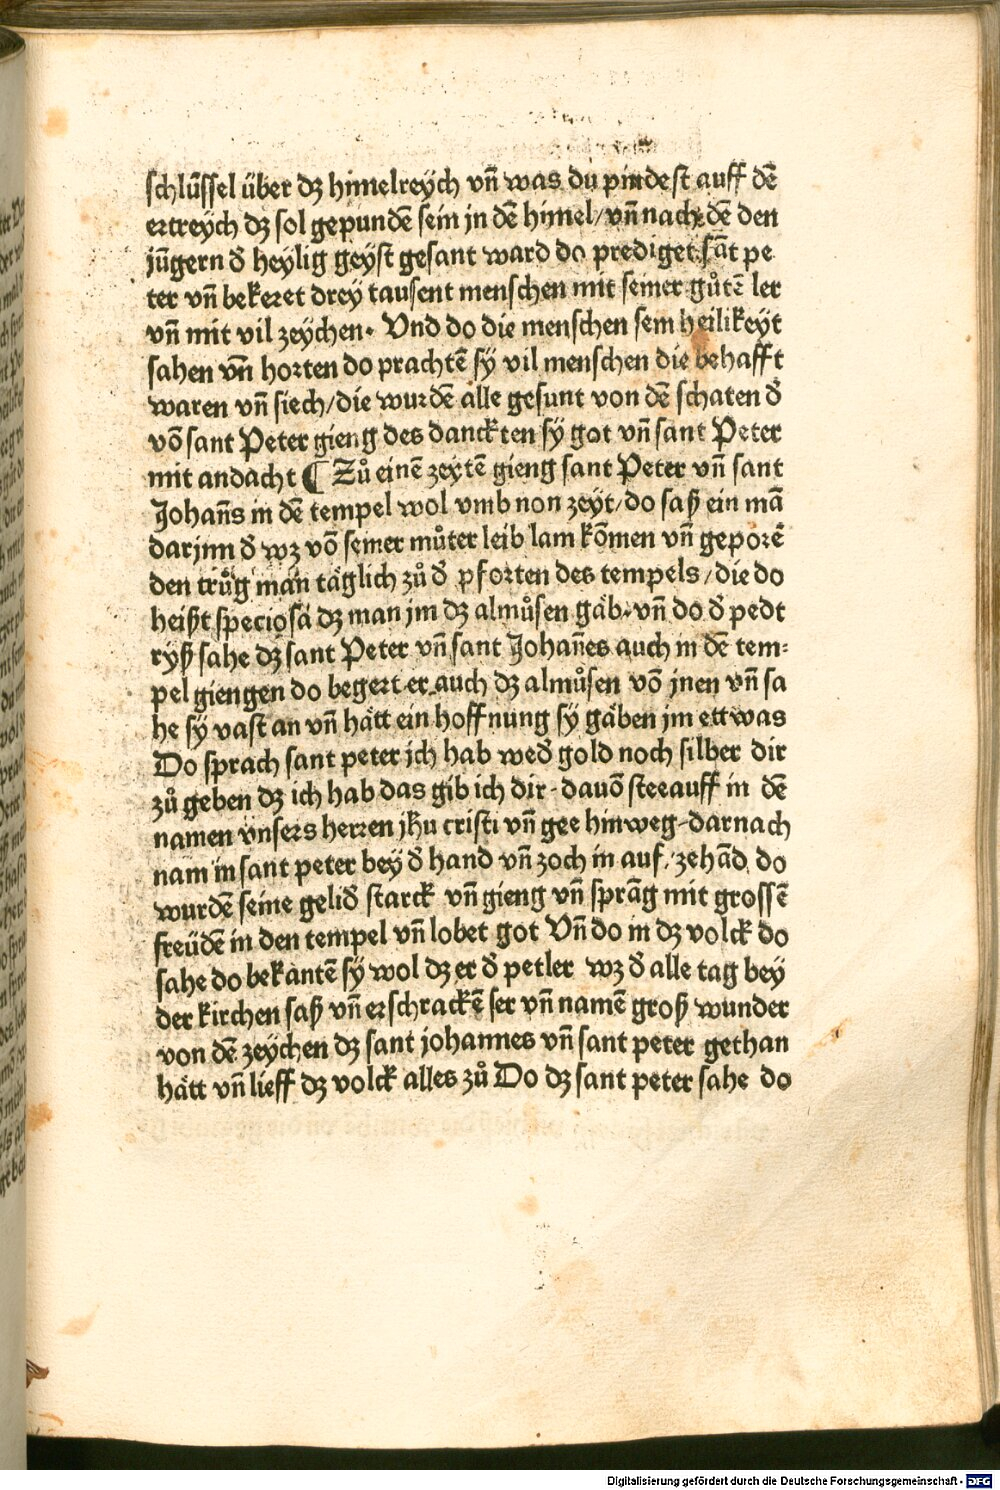 schlüssel über dz himelreÿch vn̄ was du pindest auff dē
ertreÿch dz sol gepundē sein jn dē himel/vn̄ nach dē den
jūgern d̄ heÿlig geÿst gesant ward do prediget sāt pe
ter vn̄ bekeret dreÿ tausent menschen mit seiner gůtē ler
vn̄ mit vil zeÿchen. Vnd do die menschen sein heilikeÿt
sahen vn̄ horten do prachtē sÿ vil menschen die behafft
waren vn̄ siech/die wurdē alle gesunt von dē schaten d̄
vō sant Peter gieng des danckten sÿ got vn̄ sant Peter
mit andacht ¶ Zů einē zeytē gieng sant Peter vn̄ sant
Johan̄s in dē tempel wol vmb non zeÿt/do saß ein mā
darjnn d̄ wz vō seiner můter leib lam kōmen vn̄ geporē
den trůg man täglich zů d̄ pforten des tempels/die do
heißt speciosa dz man jm dz almůsen gäb. vn̄ do d̄ pedt
ryß sahe dz sant Peter vn̄ sant Johan̄es auch in dē tem⸗
pel giengen do begert er auch dz almůsen vō jnen vn̄ sa
he sÿ vast an vn̄ hätt ein hoffnung sÿ gäben jm ettwas
Do sprach sant peter ich hab wed̄ gold noch silber dir
zů geben dz ich hab das gib ich dir. dauō stee auff in dē
namen vnsers herren jhu cristi vn̄ gee hinweg. darnach
nam in sant peter beÿ d̄ hand vn̄ zoch in auf/zehād do
wurdē seine gelid̄ starck vn̄ gieng vn̄ sprāg mit grossē
freüdē in den tempel vn̄ lobet got Vn̄ do in dz volck do
sahe do bekantē sÿ wol dz er d̄ petler wz d̄ alle tag beÿ
der kirchen saß vn̄ erschrackē ser vn̄ namē groß wunder
von dē zeÿchen dz sant johannes vn̄ sant peter gethan
hätt vn̄ lieff dz volck alles zů Do dz sant peter sahe do
Digitalisierung gefördert durch die Deutsche Forschungsgemeinschaft - DFG